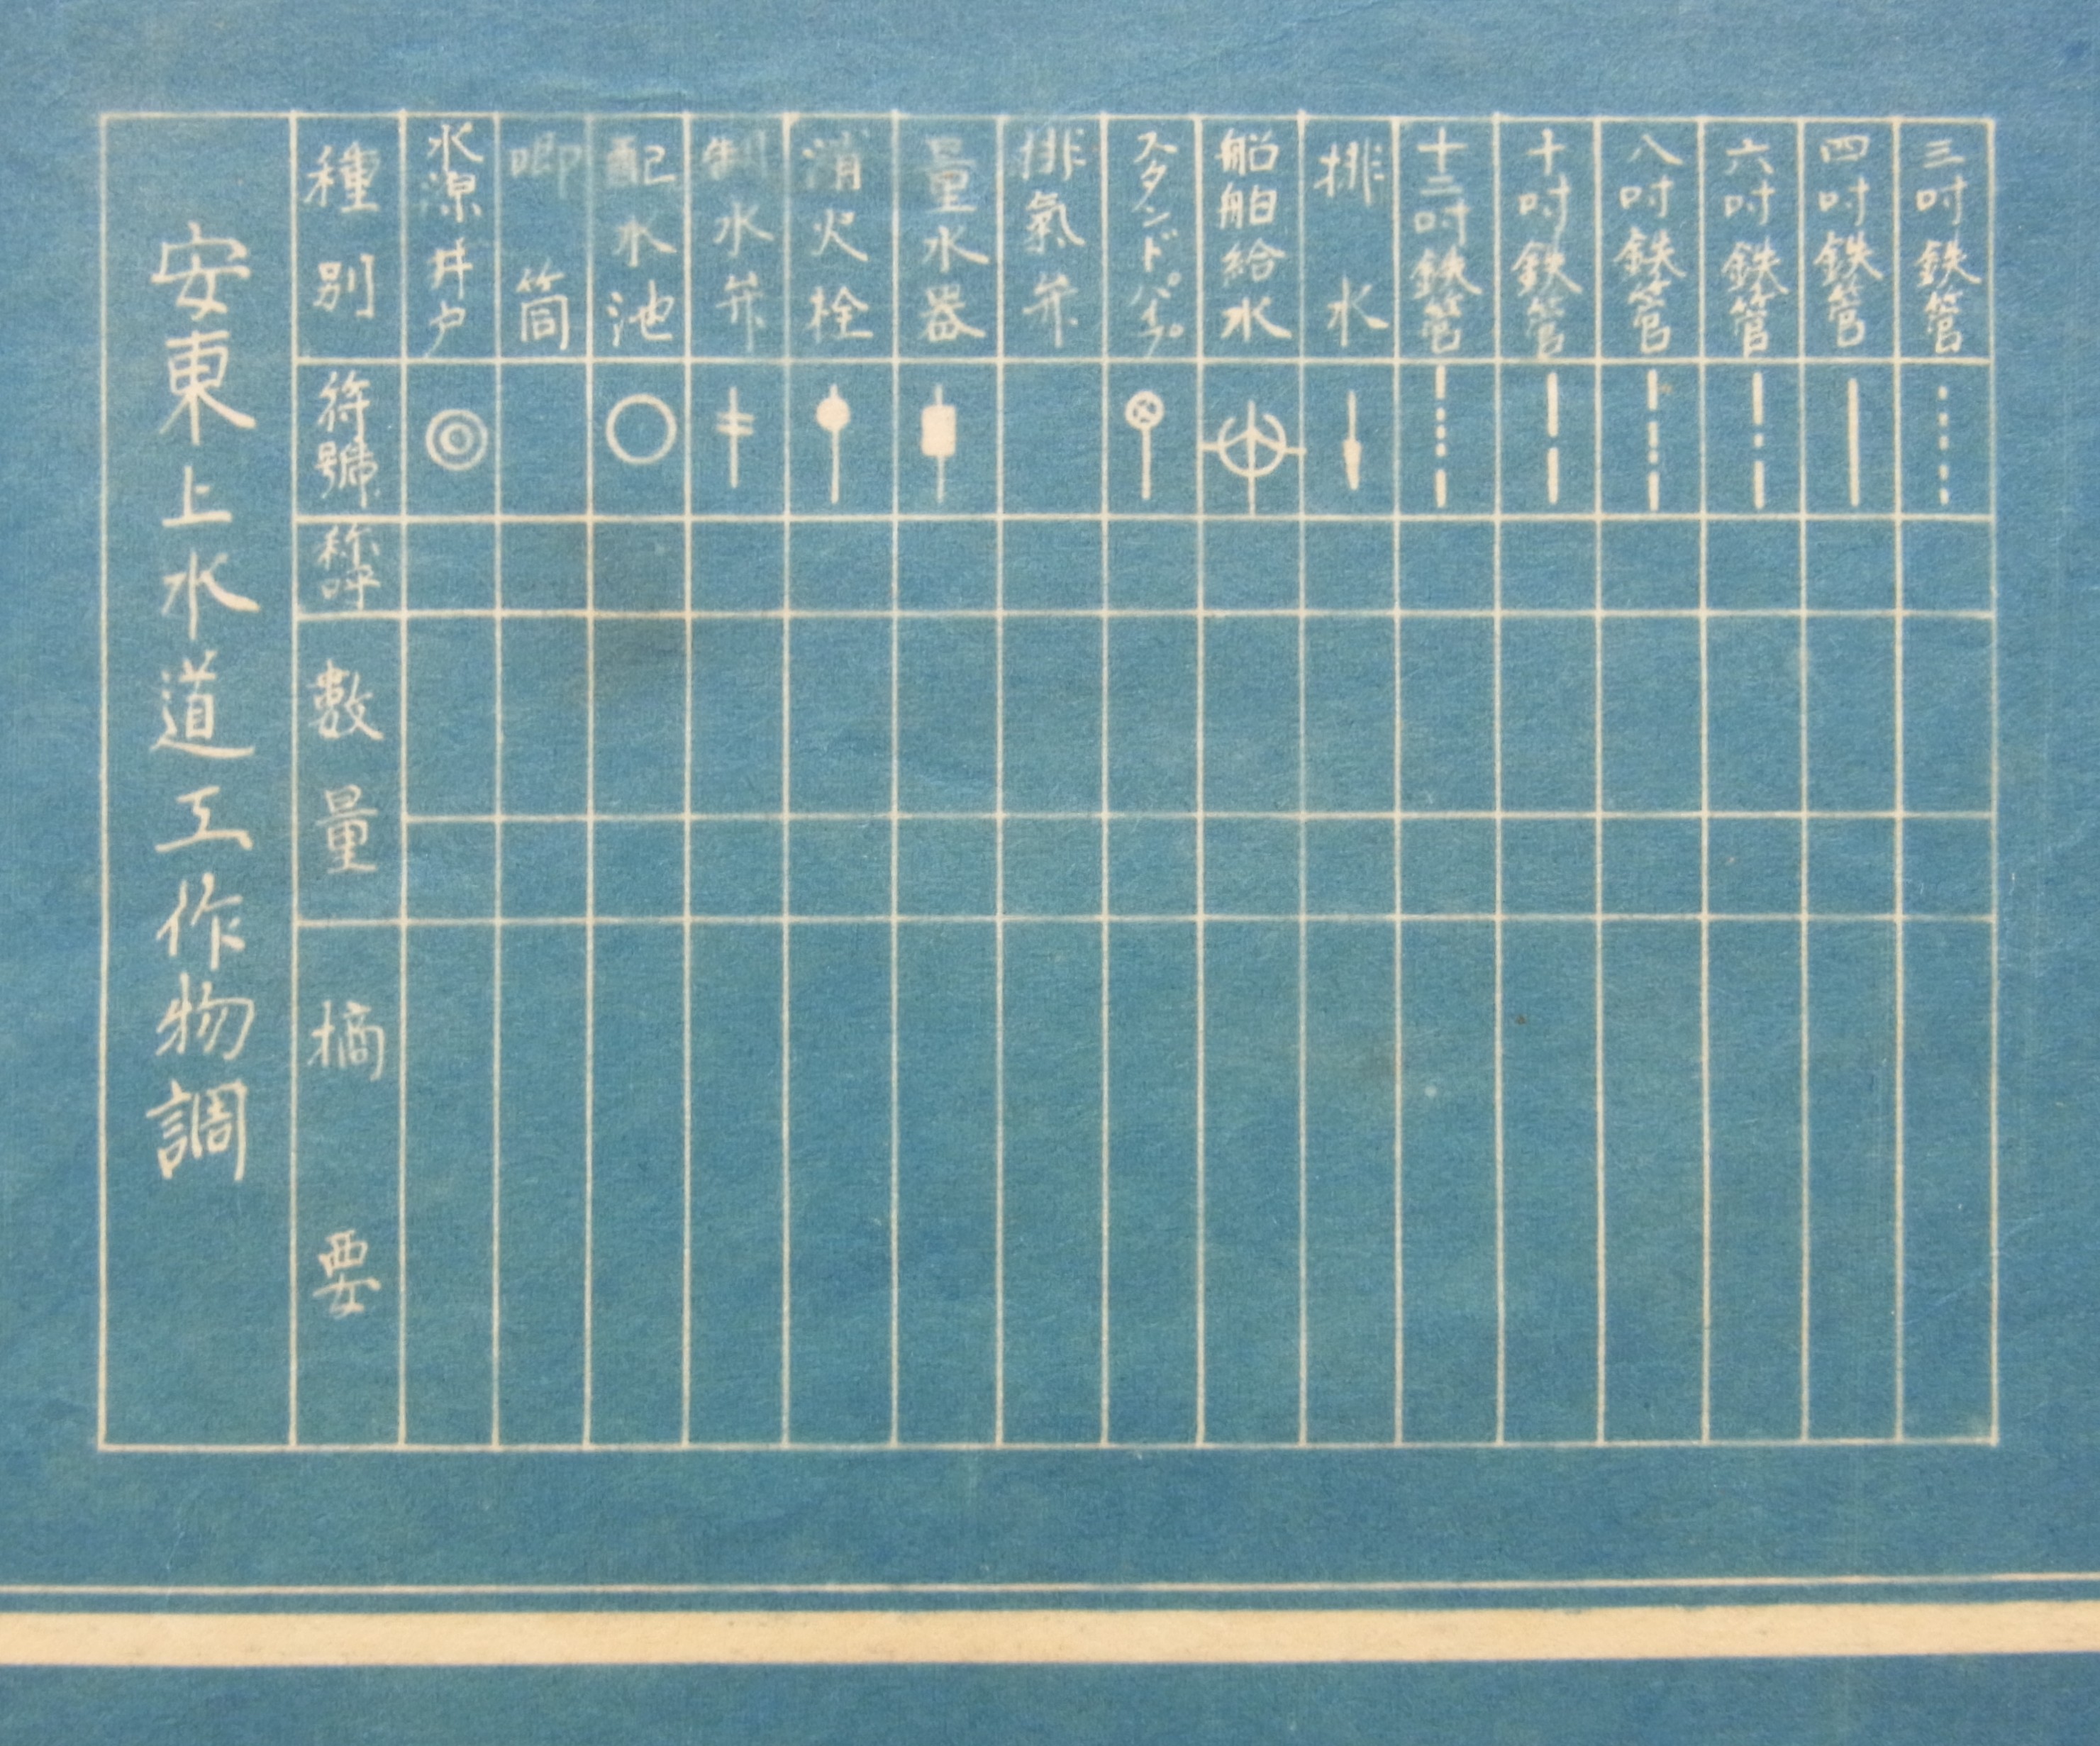 安東上水道工作物調
種別
符號
称呼
數量
摘要
水源井戸
喞筒
配水池
制水弁
消火栓
量水器
排氣弁
スタンドパイプ
船舶給水
排水
十二吋鉄管
十吋鉄管
八吋鉄管
六吋鉄管
四吋鉄管
三吋鉄管